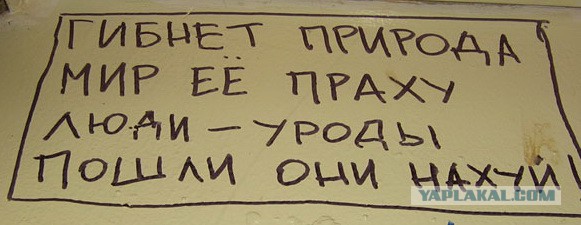 ГИБНЕТ ПРИРОДА
МИР ЕЁ ПРАХУ
ЛЮДИ – УРОДЫ
ПОШЛИ ОНИ НАХУЙ!
YAPLAKAL.COM